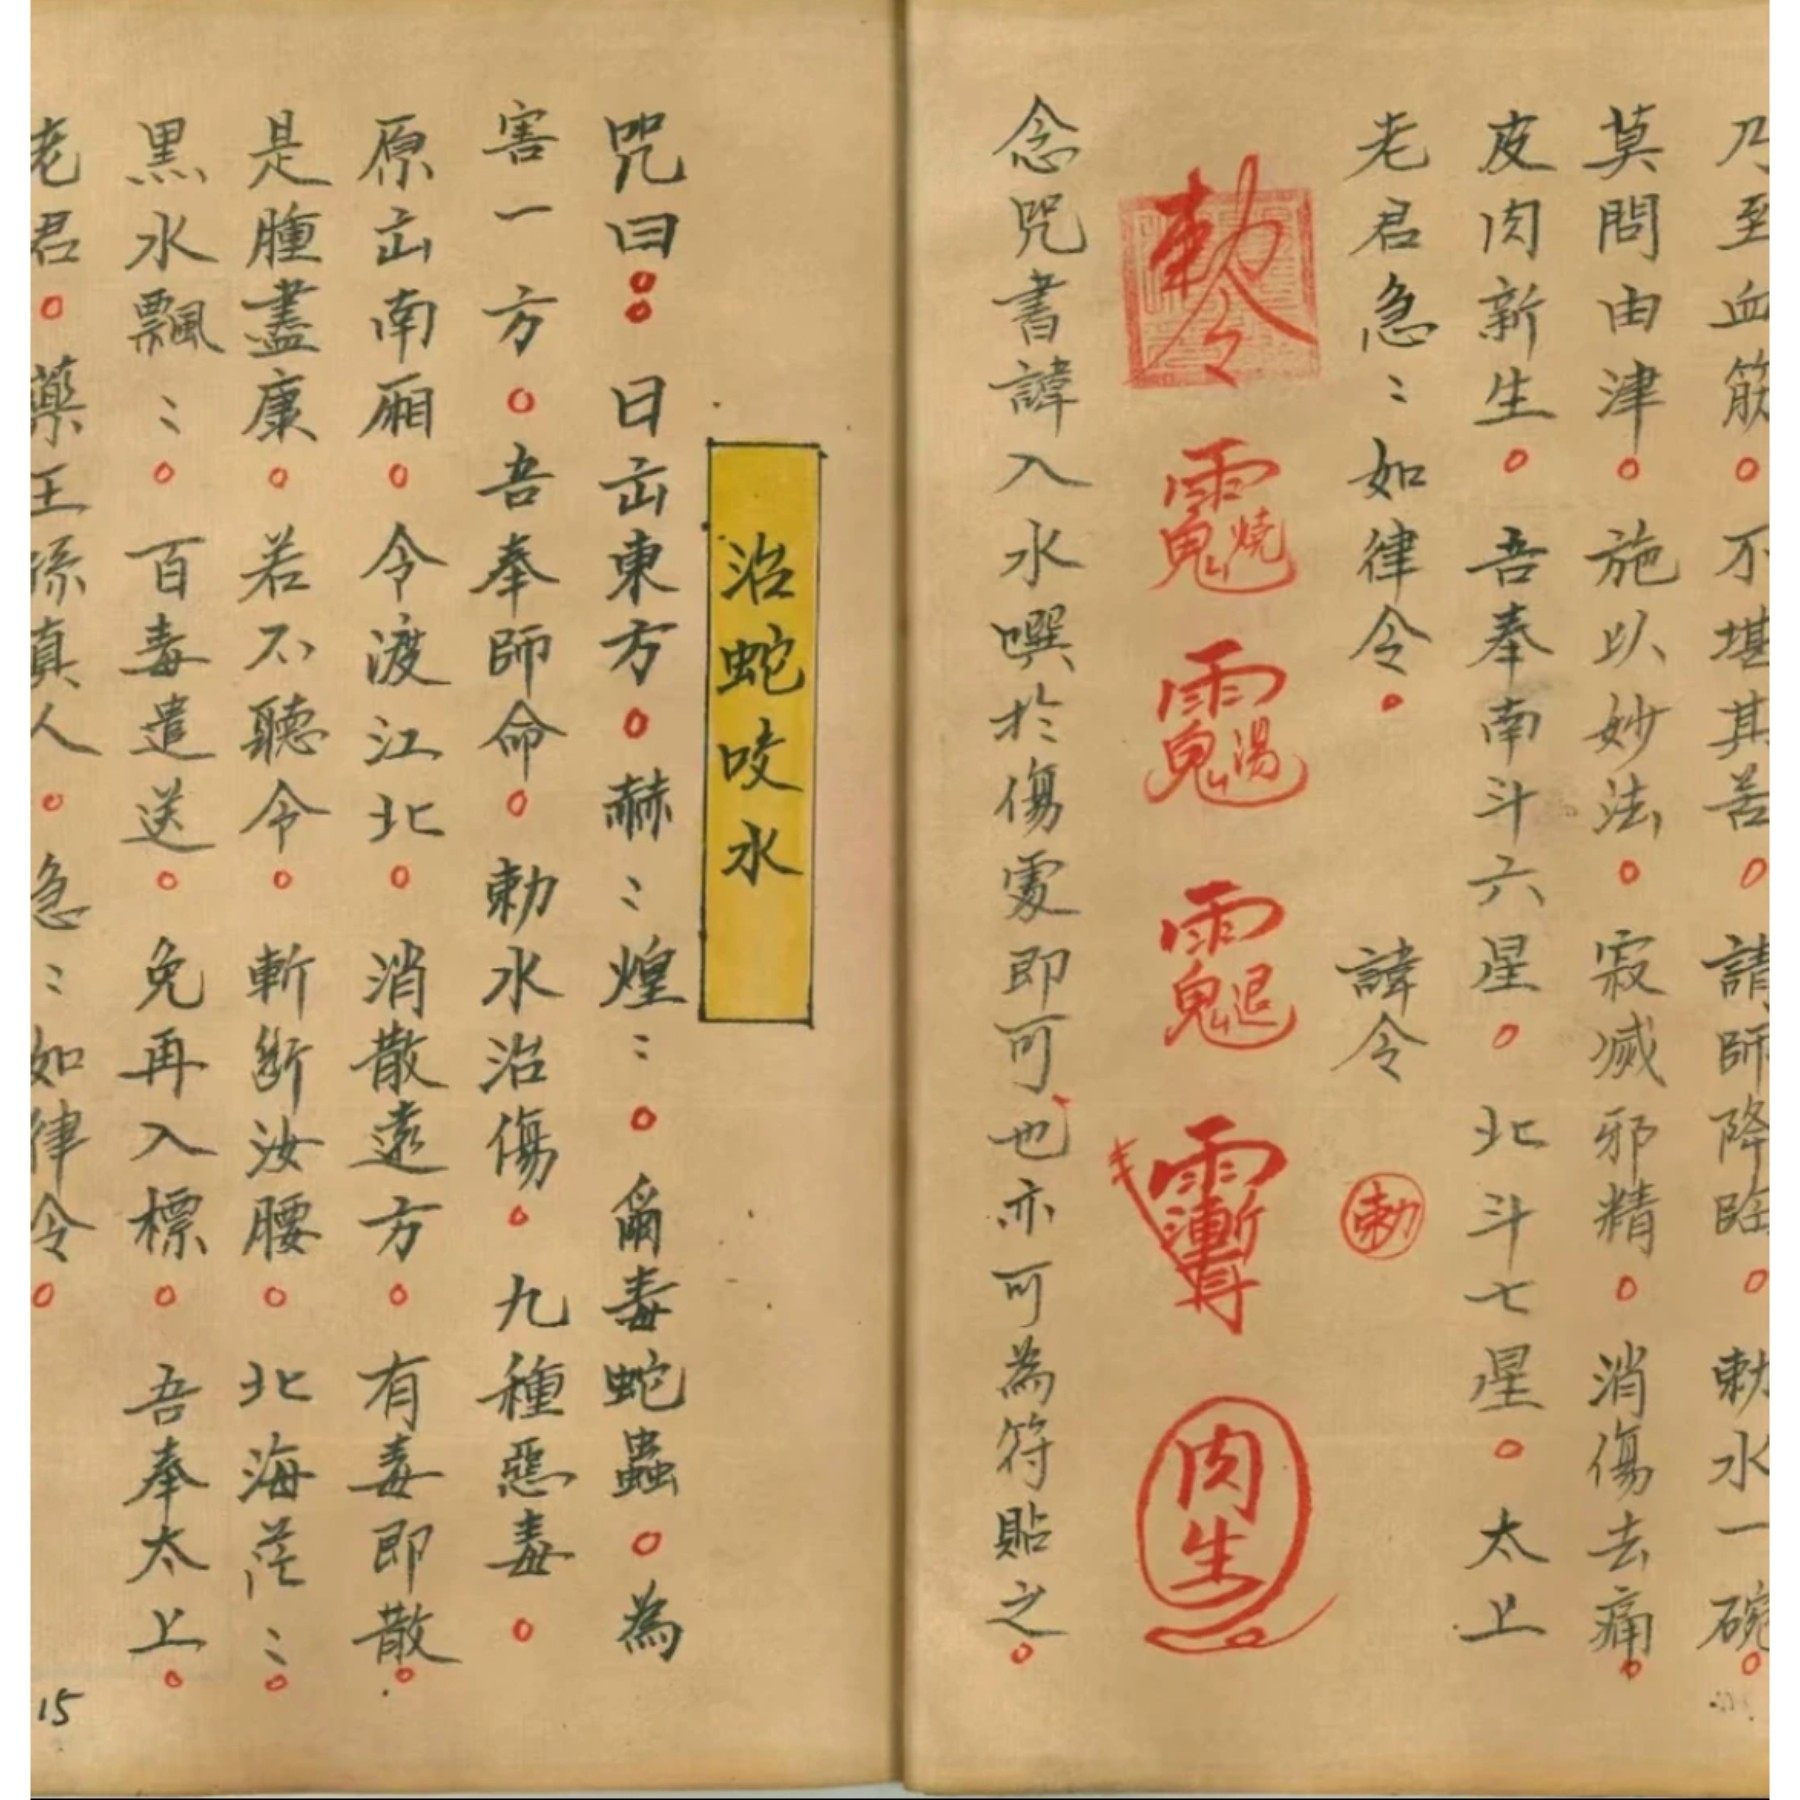 乃至血筋。不堪其苦。請師降臨。勅水一碗。
莫問由津。施以妙法。寂滅邪精。消傷去痛。
皮肉新生。吾奉南斗六星。北斗七星。太上
老君急〻如律令。 諱令 勅
勅令 肉生
念咒書諱入水噀於傷处即可也亦可為符貼之。
治蛇咬水
咒曰：日出東方。赫〻煌〻。爾毒蛇蟲。為
害一方。吾奉師命。勅水治傷。九種惡毒。
原出南廂。令渡江北。消散遠方。有毒即散。
是腫盡康。若不聽令。斬斷汝腰。北海茫〻。
黑水飄〻。百毒遣送。免再入標。吾奉太上。
老君。藥王孫真人。急〻如律令。
15